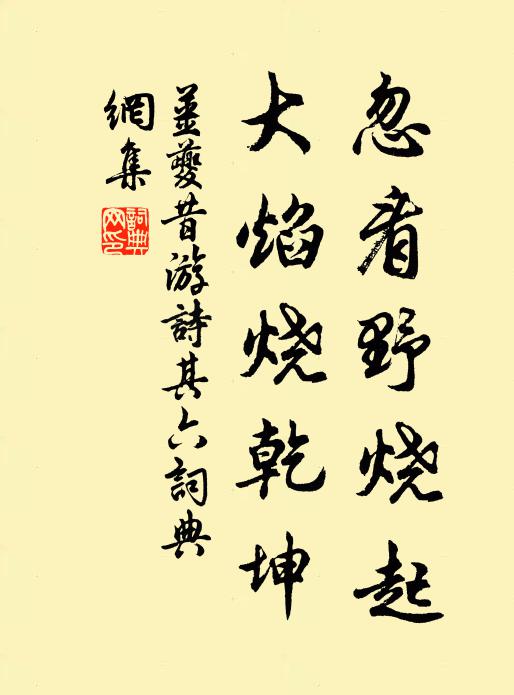 忽看野烧起
大焰烧乾坤
姜夔昔游詩其六詞典
網集
詞典
网印